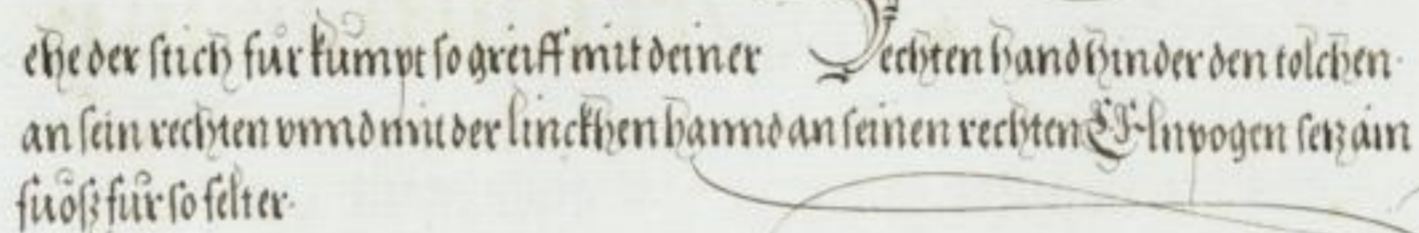 ehe der stich für kumpt so greiff mit deiner Rechten hand hinder den tolchen·
an sein rechten vnnd mit der linckhen hannd an seinen rechten Elnpogen setz ain
fuöß für so felt er·